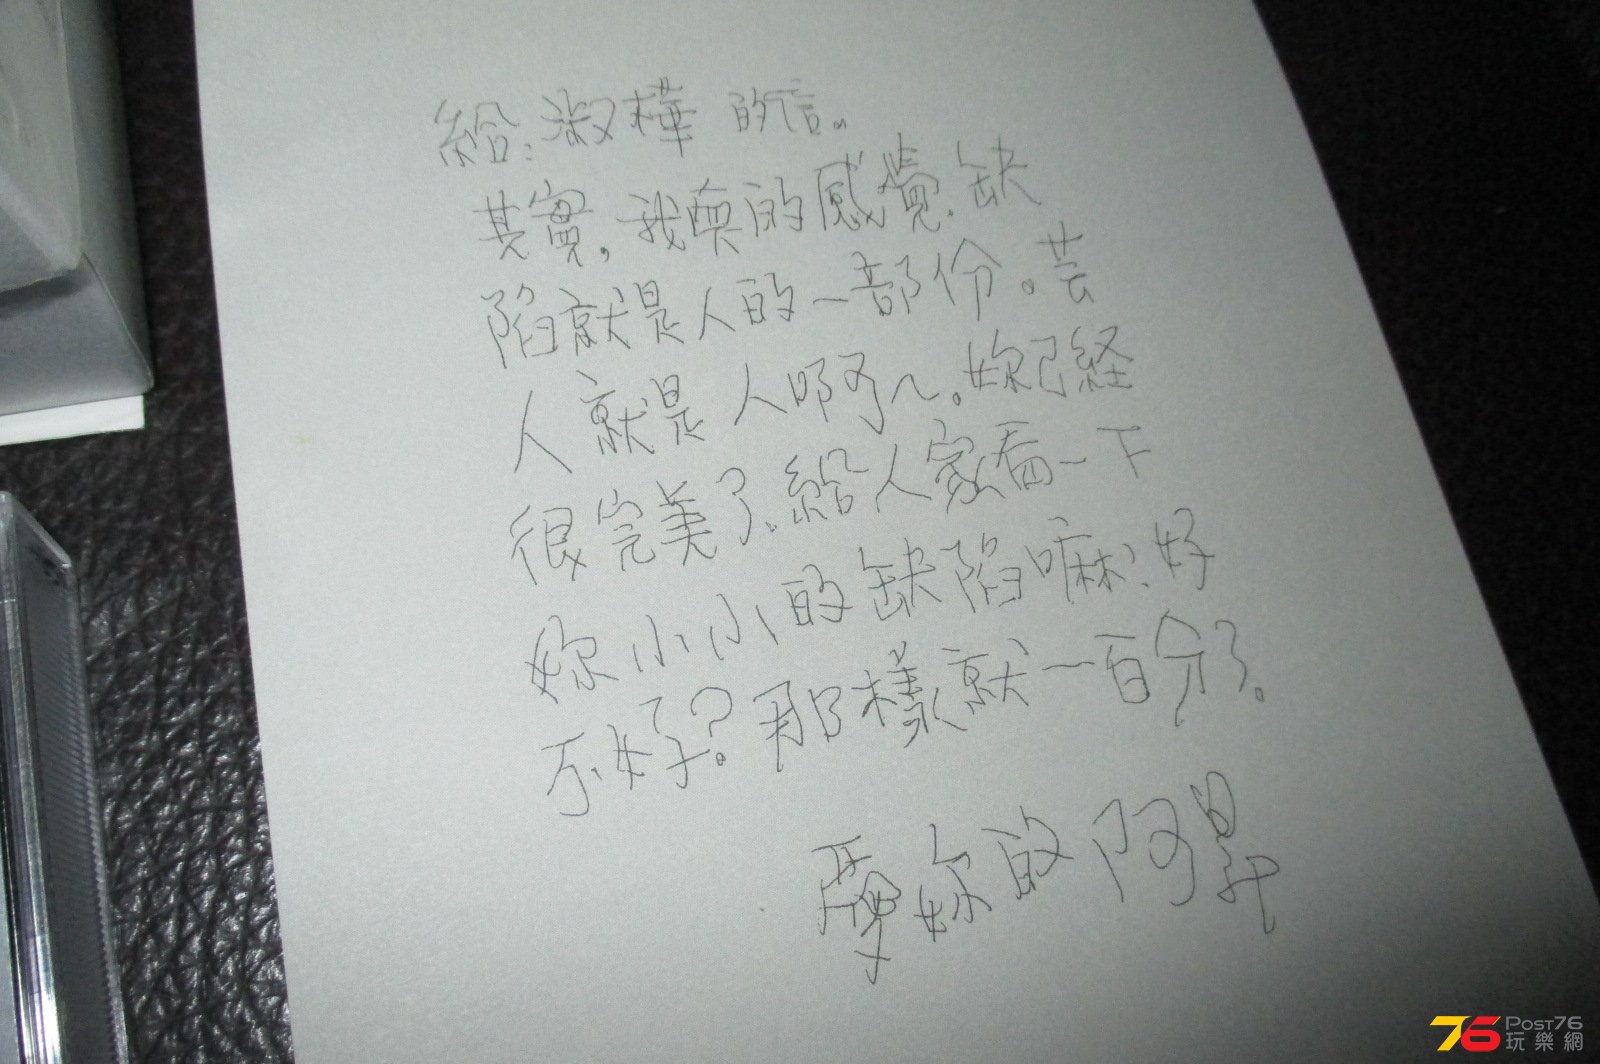 給：淑樺 的信。
其實，我真的感覺，缺
陷就是人的一部份。芸
人就是人啊～。妳已経
很完美了。給人家看一下
妳小小的缺陷嘛？好
不好？那樣就一百分了。
愛妳的阿昇
Post76
玩樂網